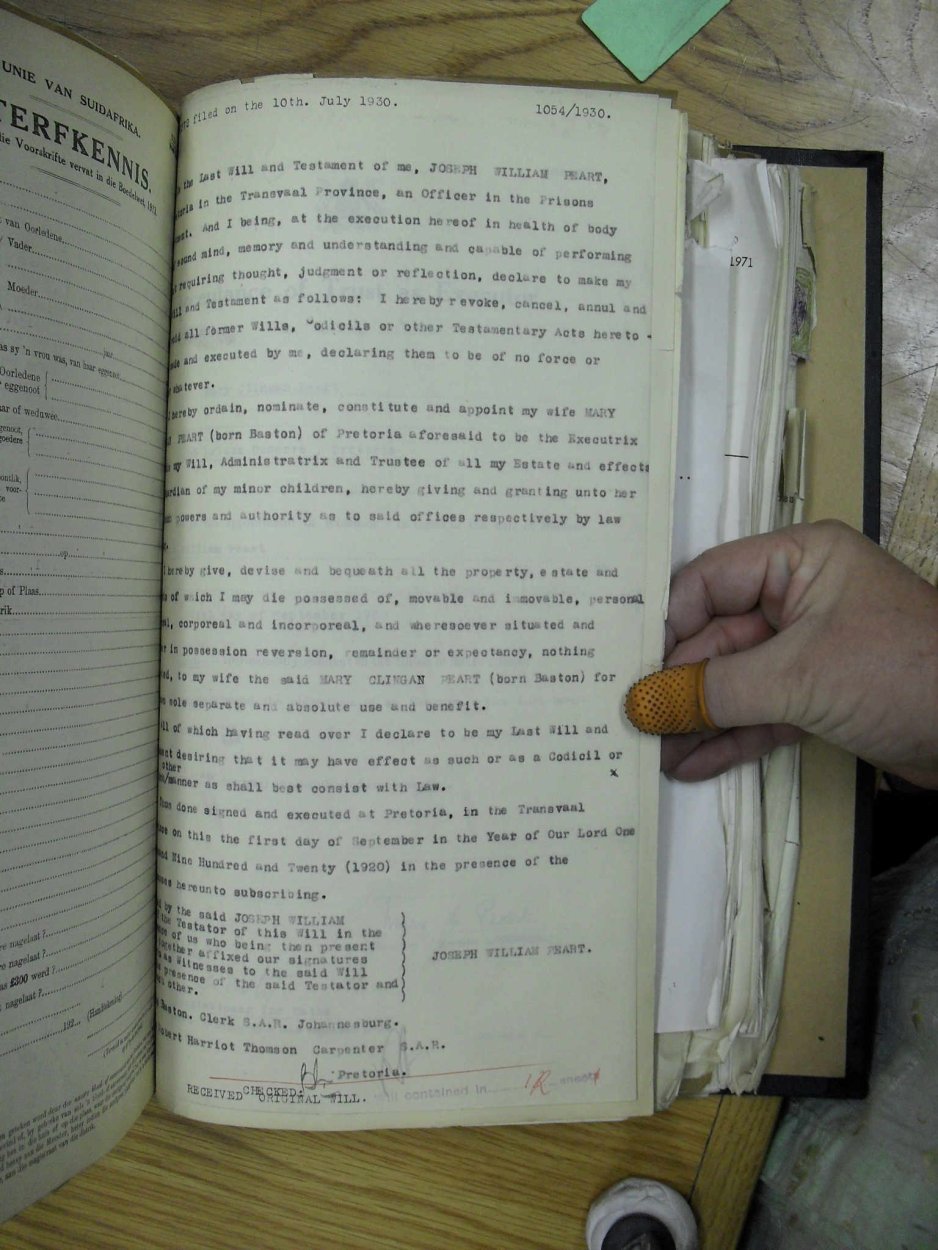 UNIE VAN SUIDAFRIKA.
TERFKENNIS.
die Voorskrifte vervat in die Boedelwet, 1913
van Oorledene
Vader
Moeder
jaar
as sy 'n vrou was, van haar eggenoot
Oorledene
eggenoot
aar of weduwee
genoot,
goedere
voor-
op
p of Plaas
rik
re nagelaat?
nagelaat?
as £300 werd?
nagelaat?
192
(Handtekening)
filed on the 10th. July 1930.
1054/1930.
the Last Will and Testament of me, JOSEPH WILLIAM PEART,
oria in the Transvaal Province, an Officer in the Prisons
ment. And I being, at the execution hereof in health of body
sound mind, memory and understanding and capable of performing
requiring thought, judgment or reflection, declare to make my
ill and Testament as follows: I hereby revoke, cancel, annul and
all former Wills, Codicils or other Testamentary Acts hereto -
ade and executed by me, declaring them to be of no force or
whatever.
I hereby ordain, nominate, constitute and appoint my wife MARY
PEART (born Baston) of Pretoria aforesaid to be the Executrix
my Will, Administratrix and Trustee of all my Estate and effects
ardian of my minor children, hereby giving and granting unto her
powers and authority as to said offices respectively by law
I hereby give, devise and bequeath all the property, estate and
of which I may die possessed of, movable and immovable, personal
al, corporeal and incorporeal, and wheresoever situated and
er in possession reversion, remainder or expectancy, nothing
ed, to my wife the said MARY CLINGAN PEART (born Baston) for
sole separate and absolute use and benefit.
All of which having read over I declare to be my Last Will and
ent desiring that it may have effect as such or as a Codicil or
other
/manner as shall best consist with Law. x
Thus done signed and executed at Pretoria, in the Transvaal
ce on this the first day of September in the Year of Our Lord One
and Nine Hundred and Twenty (1920) in the presence of the
sses hereunto subscribing.
by the said JOSEPH WILLIAM
the Testator of this Will in the
ce of us who being then present
together affixed our signatures
as Witnesses to the said Will
presence of the said Testator and
other.
JOSEPH WILLIAM PEART.
Baston. Clerk S.A.R. Johannesburg.
obert Harriot Thomson Carpenter S.A.R.
Pretoria.
CHECKED:
RECEIVED ORIGINAL WILL.
will contained in 1R sheet
1971